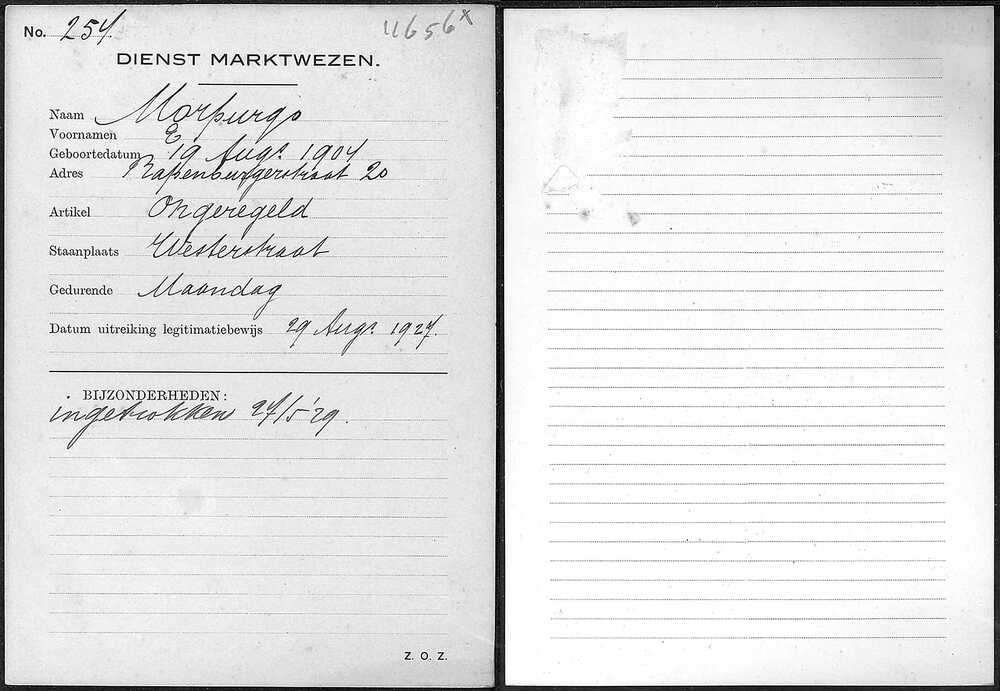 No. 257.
11656x
DIENST MARKTWEZEN.
Naam Morpurgo
Voornamen E
Geboortedatum 19 Augs. 1907
Adres Rapenburgerstraat 20
Artikel Ongeregeld
Staanplaats Westerstraat
Gedurende Maandag
Datum uitreiking legitimatiebewijs 29 Augs. 1927.
BIJZONDERHEDEN:
ingetrokken 27/5 '29.
Z. O. Z.